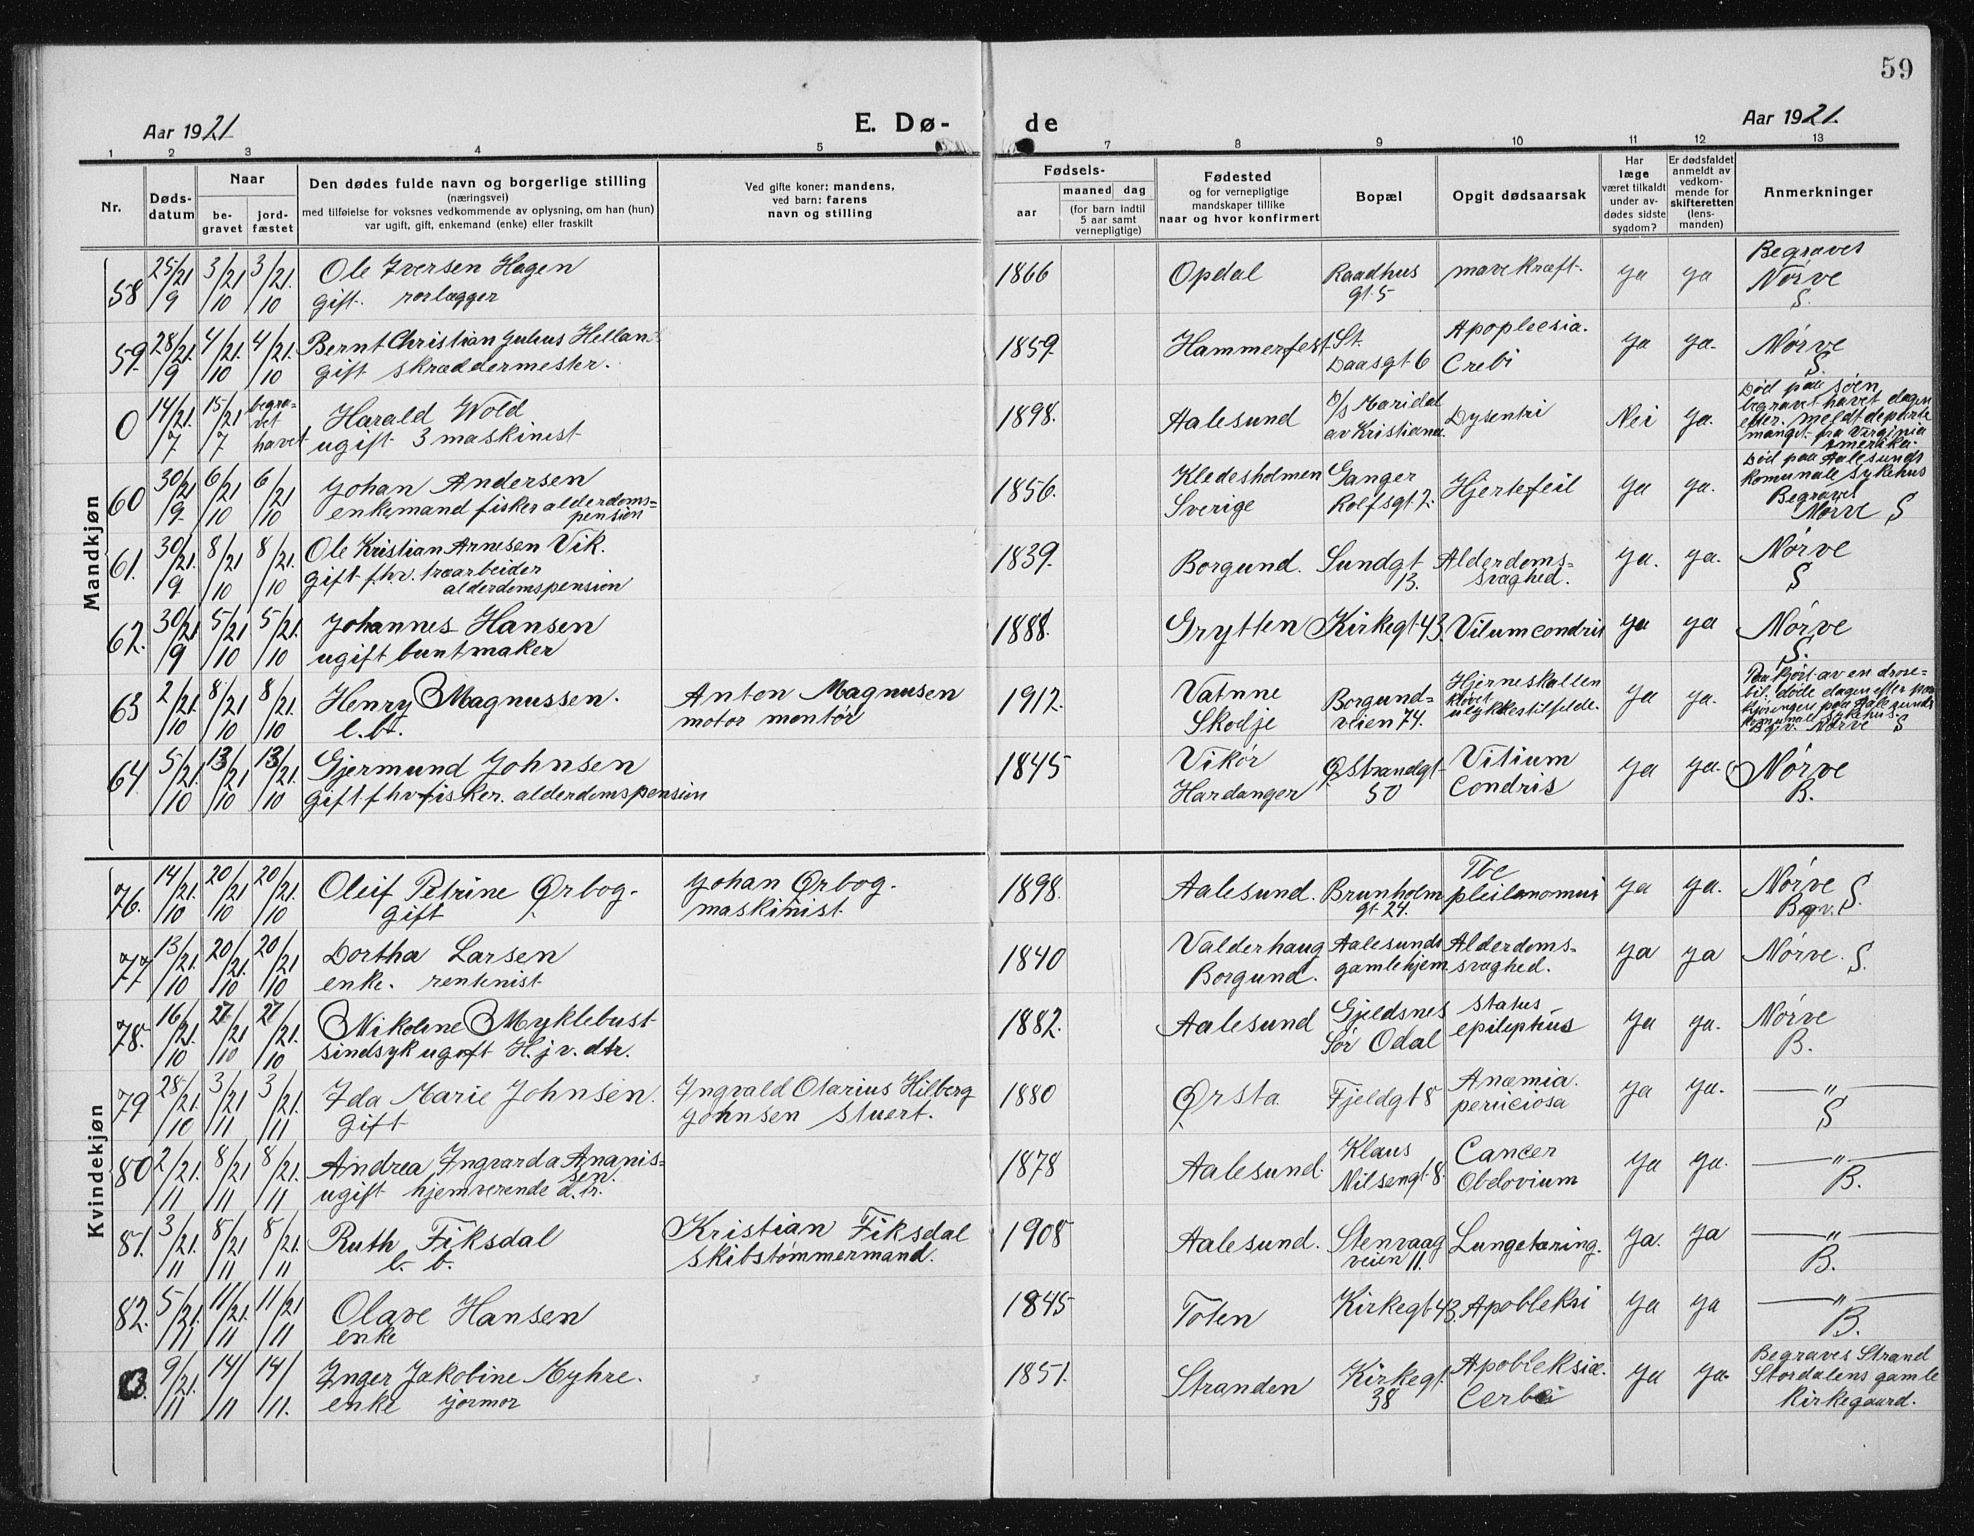 59
Aar 1921. E. Dø- de Aar 1921.
1 2 3 4 5 7 8 9 10 11 12 13
Nr. Døds-datum Naar be-gravet jord-fæstet Den dødes fulde navn og borgerlige stilling (næringsvei) med tilføielse for voksnes vedkommende av oplysning, om han (hun) var ugift, gift, enkemand (enke) eller fraskilt Ved gifte koner: mandens, ved barn: farens navn og stilling Fødsels- aar maaned dag (for barn indtil 5 aar samt vernepligtige) Fødested og for vernepligtige mandskaper tillike naar og hvor konfirmert Bopæl Opgit dødsaarsak Har læge været tilkaldt under av-dødes sidste sygdom? Er dødsfaldet anmeldt av vedkom-mende for skifteretten (lens-manden) Anmerkninger
Mandkjøn
58 25/9 21 3/10 21 3/10 21. Ole Iversen Hagen 1866 Opdal Raadhus mavekræft. ya ya Begraves
gift. rorlægger gt. 5 Nørve S.
59. 28/9 21. 4/10 21. 4/10 21. Bernt Christian Julius Hellan 1859. Hammerfest St. Apopleesia. ya ya. Nørve
gift skræddermester. Daasgt 6 Crebi S.
0 14/7 21. 15/7 21 begra-vet havet Harald Wold 1898. Aalesund D/S Maridal Dysentri Nei ya. Død paa søen
ugift 3 maskinist av Kristiania begravet havet dagen
efter. meldt departe
manget fra Virginia
Amerika.
60 30/9 21 6/10 21 6/10 21 Johan Andersen 1856. Kledesholmen Ganger Hjertefeil ya ya. Død paa Aalesunds
enkemand fisker alderdoms- Sverige Rolfsgt 2. komunale sykehus
pension Begravet
Nørve S
61. 30/9 21. 8/10 21 8/10 21. Ole Kristian Arnesen Vik. 1839. Borgund. Sundgt Alderdoms- ya. ya. Nørve
gift fhv. træarbeider 13. svaghed. S
alderdomspension
62. 30/9 21 5/10 21 5/10 21. Johannes Hansen 1888. Grytten Kirkegt 43. Vitumcondris ya ya Nørve
ugift buntmaker S.
63 2/10 21. 8/10 21 8/10 21. Henry Magnussen. Anton Magnusen 1912. Vatnne Borgund- Hjerneskallen ya ya. Paakjørt av en drose-
l. bt. motor montør Skodje veien 74. kløvet bil. døde dagen efter
ulykkestilfelde. paa Aalesunds
komunale sykehus.
Bgr. Nørve S
64. 5/10 21. 13/10 21 13/10 21. Gjermund Johnsen 1845 Vikør Ø Strandgt Vitium ya ya. Nørve
gift fhv fisker. alderdomspension Hardanger 50 Condris B.
Kvindekjøn
76. 14/10 21. 20/10 21 20/10 21. Oleif Petrine Ørbog. Johan Ørbog. 1898. Aalesund. Brunholm Tbc ya ya. Nørve S.
gift maskinist gt 24. Bgr.
77 13/10 21. 20/10 21. 20/10 21 Dortha Larsen 1840 Valderhaug Aalesunds Alderdoms- ya ya Nørve. S.
enke. rentenist Borgund. gamlehjem svaghed.
78. 16/10 21. 27/10 21 27/10 21. Nikoline Myklebust 1882. Aalesund Gjeldsnes Status ya ya. Nørve
sindsyk ugift H. j v. dtr. Sør Odal epileptius B.
79 28/10 21. 3/11 21 3/11 21. Ida Marie Johnsen. Ingvald Olarius Hilberg 1880 Ørsta Fjeldgt 8 Anæmia. ya ya. — " —
gift Johnsen stuert. perniciosa S
80 2/11 21. 8/11 21 8/11 21. Andrea Ingvarda Ananis- 1878 Aalesund. Klaus Cancer ya ya. — " —
sen. Nilsengt 8. Obdovium B.
ugift hjemverende d. tr.
81. 3/11 21. 8/11 21 8/11 21. Ruth Fiksdal Kristian Fiksdal 1908 Aalesund. Stenvaag Lungetæring. ya. ya — " —
b. b. skibstømmermand. veien 11. B.
82. 5/11 21. 11/11 21. 11/11 21 Olave Hansen 1845 Toten Kirkegt 43. Apobleksi ya ya — " —
enke B.
9/11 21. 14/11 14/11. Inger Jakobine Myhre. 1851. Stranden Kirkegt. Apobleksiæ ya ya. Begraves Strand
enke jormor 38 Cerbi Stordalens gamle
kirkegaard.